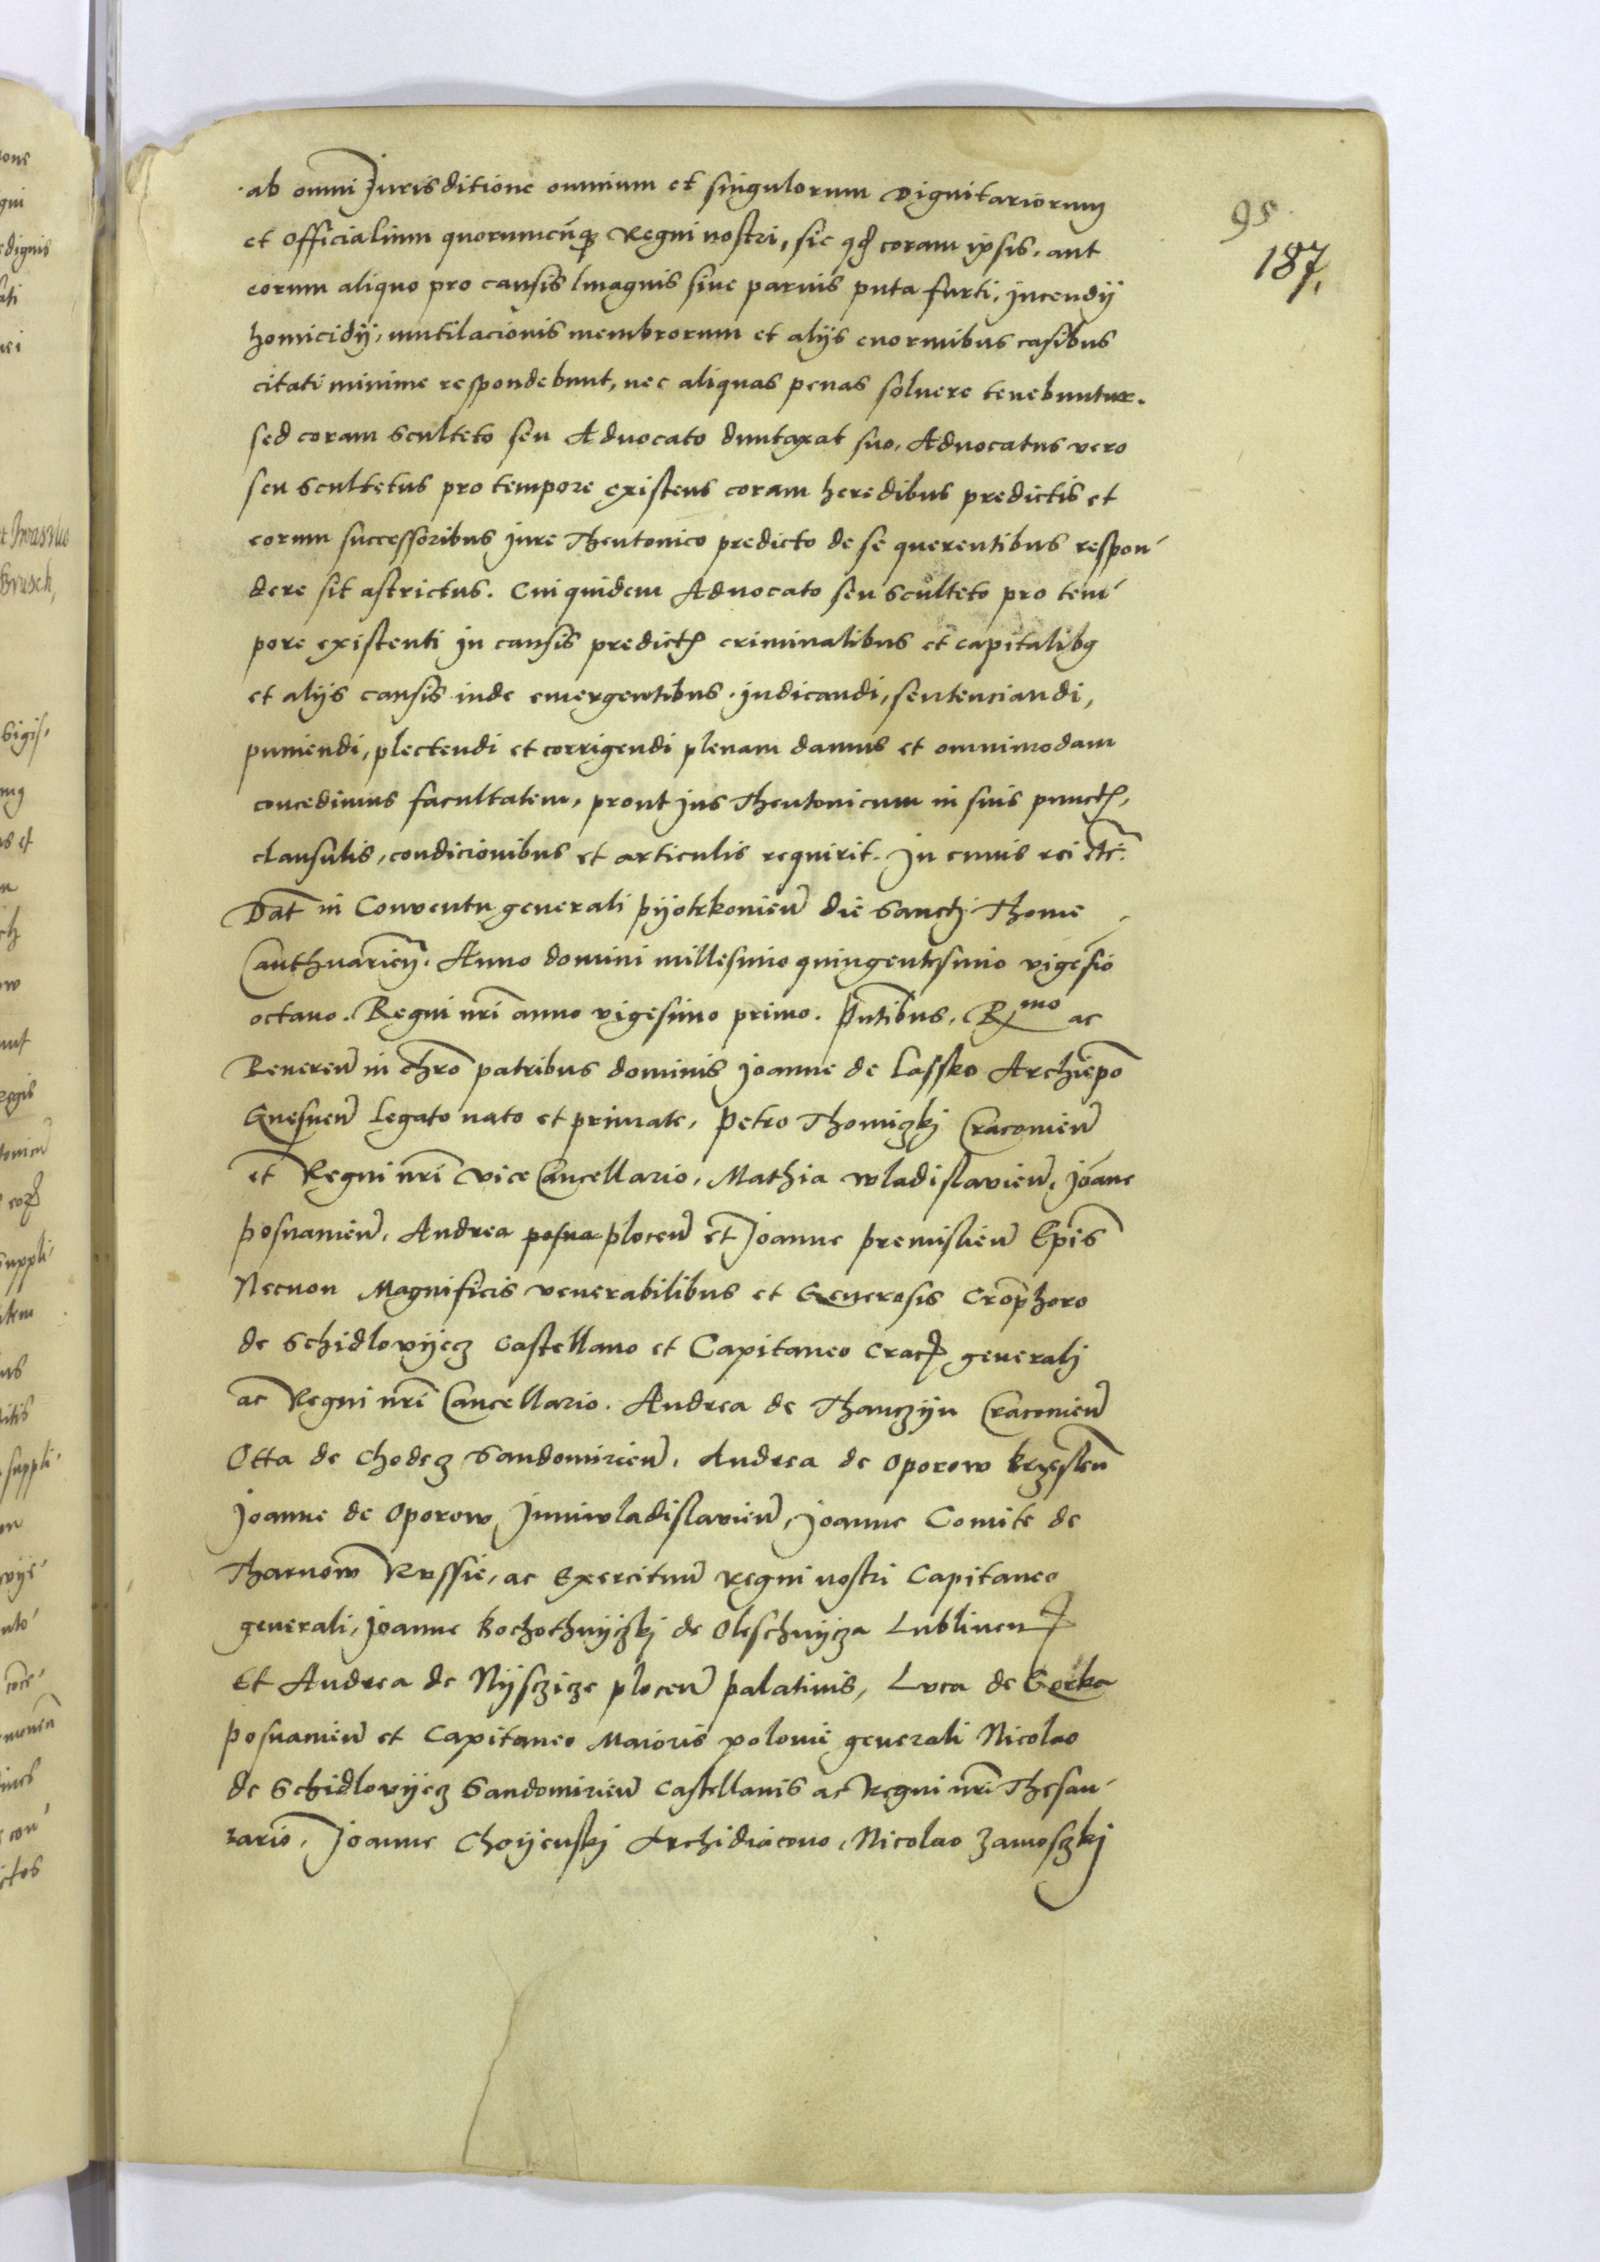 95
187.
ab omni Jurisditione omnium et singulorum Dignitariorum
et Officialium quorumcunq Regni nostri, sic qd coram ipsis, aut
eorum aliquo pro causis magnis siue paruis puta furti, incendij
homicidij, mutilacionis membrorum et alijs enormibus casibus
citati minime respondebunt, nec aliquas penas soluere tenebuntur.
sed coram Sculteto seu Aduocato duntaxat suo. Aduocatus vero
seu scultetus pro tempore existens coram heredibus predictis et
eorum successoribus iure Theutonico predicto de se querentibus respon-
dere sit astrictus. Cui quidem Aduocato seu sculteto pro tem-
pore existenti in causis predictis criminalibus et capitalibq
et alijs causis inde emergentibus. iudicandi, sentenciandi,
puniendi, plectendi et corrigendi plenam damus et omnimodam
concedimus facultatem, prout ius Theutonicum in suis punctis,
clausulis, condicionibus et articulis requirit. In cuius rei etc.
Dat in Conuentu generali pijotrkonien die Sancti Thome
Canthuarien. Anno domini millesimo quingentesimo vigesio
octauo. Regni nri anno vigesimo primo. Pntibus, Rmo ac
Reueren in chro patribus dominis Joanne de Lassko Archiepo
Gnesnen Legato nato et primate, Petro Thomiczkj Cracouien
et Regni nri Vice Cancellario, Mathia wladislauien, Joane
posnanien, Andrea posna plocen et Joanne premislien Epis
Necnon Magnificis venerabilibus et Generosis Crophoro
de Schidlovijecz Castellano et Capitaneo Crac generalj
ac Regni nri Cancellario. Andrea de Thanczijn Cracouien
Otta de Chodecz Sandomirien, Andrea de Oporow brzesten
Joanne de Oporow Juniwladislauien, Joanne Comite de
Tharnow Russie, ac Exercituu regni nostri Capitaneo
generali, Joanne de Oleschnijcza Lublinen
Et Andrea de Nijsczicze plocen palatinis, Luca de Gorka
posnanien et Capitaneo Maioris polonie generali Nicolao
de Schidlovijecz Sandomirien Castellanis ac Regni nri Thesau-
rario, Joanne Choijenskj Archidiacono, Nicolao Zamosczkj